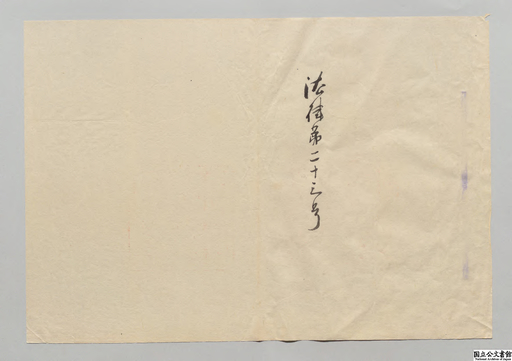 法律第二十三号
国立公文書館
National Archives of Japan